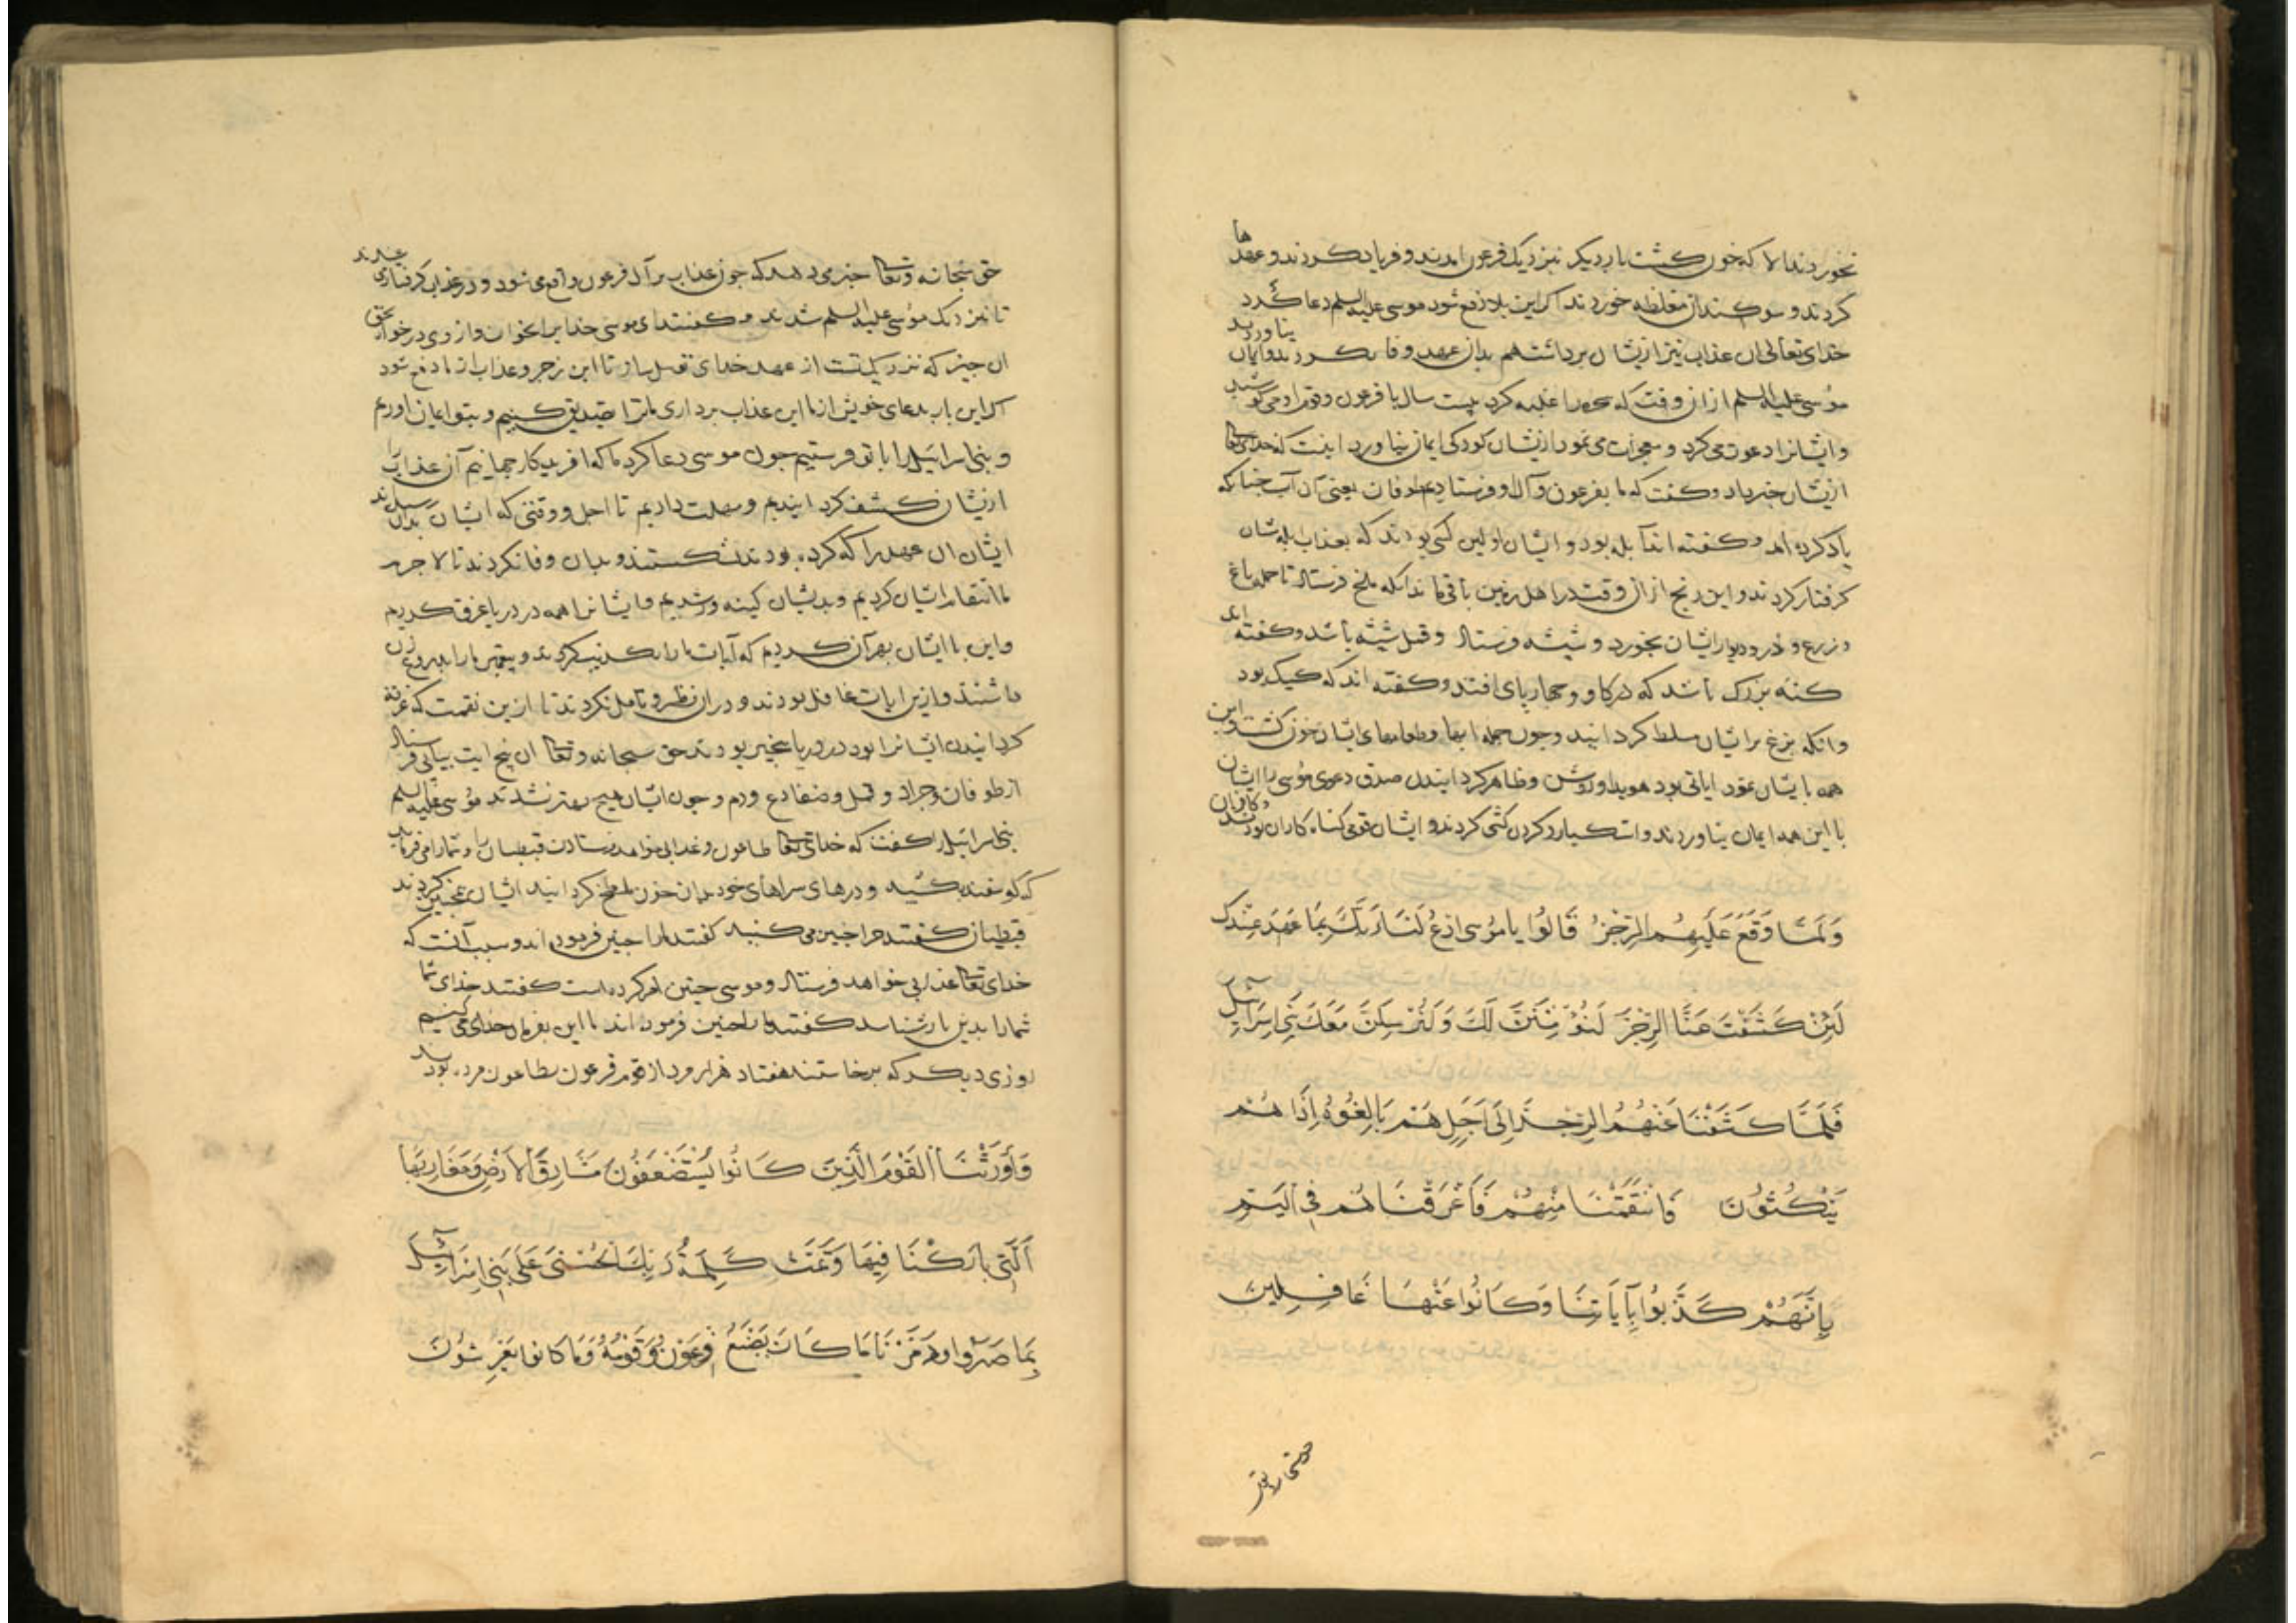 نخوردند الا که خون کشت بار دیکر بنزدیک فرعون امدند و فریاد کردند و عهدها
کردند و سوکندان مغلظه خوردند اکر این بلا رفع شود موسی علیه السلم دعا کرد
خدای تعالی ان عذاب نیز ازیشان برداشت هم بدان عهد وفا نکردند و ایمان نیاوردند
موسی علیه السلم ازان وقت که سحره را غلبه کرد بیست سال با فرعون و قوم او می کوشید
و ایشانرا دعوت می کرد و معجزات می نمود ازیشان کودکی ایمان نیاورد اینست که خدای تعا
ازیشان خبر داد و کفت که ما بفرعون و آل او فرستادیم طوفان یعنی آن آب چنانکه
یاد کرده اند و کفته اند آبله بود و ایشان اولین کسی بودند که بعذاب بله شان
کرفتار کردند و این رنج ازان وقت در اهل زمین باقی ماند انکه ملخ فرستاد تا جمله باغ
و زرع و در و دیوار ایشان بخورد و شپشه فرستاد و قمل شپشه باشد و کفته اند
کنه بزرک باشد که در کاو و چهارپای افتد و کفته اند که کیک بود
وانکه بزغ برایشان مسلط کردانید و چون جمله ابها و طعامهای ایشان خون کشت و این
همه بایشان نمود ایاتی بود هویدا و روشن و ظاهر کردانیدن صدق دعوی موسی را ایشان
با این همه ایمان نیاوردند و استکبار و کردن کشی کردند و ایشان قومی کناه کاران بودند و کافران
وَلَمَّا وَقَعَ عَلَيْهِمُ الرِّجْزُ قَالُوا يَا مُوسَى ادْعُ لَنَا رَبَّكَ بِمَا عَهِدَ عِنْدَكَ
لَئِنْ كَشَفْتَ عَنَّا الرِّجْزَ لَنُؤْمِنَنَّ لَكَ وَلَنُرْسِلَنَّ مَعَكَ بَنِي إِسْرَائِيلَ
فَلَمَّا كَشَفْنَا عَنْهُمُ الرِّجْزَ إِلَى أَجَلٍ هُمْ بَالِغُوهُ إِذَا هُمْ
يَنْكُثُونَ فَانْتَقَمْنَا مِنْهُمْ فَأَغْرَقْنَاهُمْ فِي الْيَمِّ
بِأَنَّهُمْ كَذَّبُوا بِآيَاتِنَا وَكَانُوا عَنْهَا غَافِلِينَ
حق سبحانه وتعا خبر می دهد که چون عذاب بر آل فرعون واقع می شود و در عذاب کرفتار می شدند
تا بنزدیک موسی علیه السلم شدند و کفتند ای موسی خدا برا بخوان و از وی درخواه بحق
ان چیز که نزدیک تست از عهد خدای تا این زجر و عذاب از ما دفع شود
اکر این بار بدعای خویش از ما این عذاب برداری ما ترا تصدیق کنیم و بتو ایمان اوریم
و بنی اسرائیل را با تو فرستیم چون موسی دعا کرد ما که افریدکار جهانیم آن عذاب را
ازیشان کشف کردانیدیم و مهلت دادیم تا اجل و وقتی که ایشان بدان رسیدند
ایشان ان عهد را که کرده بودند بشکستند و بدان وفا نکردند تا لا جرم
ما انتقام ازیشان کردیم و بدیشان کینه ور شدیم و ایشانرا همه در دریا غرق کردیم
و این با ایشان بهر آن کردیم که آیات ما را تکذیب کردند و پیغمبر ما را بدروغ زن
داشتند و ازین ایات غافل بودند و دران نظر و تامل نکردند تا ازین نقمت که غرقه
کردانیدن ایشانرا بود در دریا بیخبر بودند حق سبحانه وتعا ان پنج ایت بیاپی فرستاد
از طوفان و جراد و قمل و ضفادع و دم و چون ایشان هیچ بهتر نشدند موسی علیه السلم
بنی اسرائیل را کفت که خدای تعا طاعون و عذابی خواهد فرستادن قبطیان را و شما را می فرماید
که کوسفند بکشید و درهای سراهای خود بدان خون ملطخ کردانید ایشان همچنین کردند
قبطیان کفتند چرا چنین می کنید کفتند ما را چنین فرموده اند و سبب آنست که
خدای تعا عذابی خواهد فرستاد و موسی چنین امر کرده است کفتند خدای شما
شما را بدین باز شناسد کفتند ما را چنین فرموده اند ما این بفرمان خدای می کنیم
روزی دیکر که برخاستند هفتاد هزار مرد از قوم فرعون بطاعون مرده بودند
وَأَوْرَثْنَا الْقَوْمَ الَّذِينَ كَانُوا يُسْتَضْعَفُونَ مَشَارِقَ الْأَرْضِ وَمَغَارِبَهَا
الَّتِي بَارَكْنَا فِيهَا وَتَمَّتْ كَلِمَةُ رَبِّكَ الْحُسْنَى عَلَى بَنِي إِسْرَائِيلَ
بِمَا صَبَرُوا وَدَمَّرْنَا مَا كَانَ يَصْنَعُ فِرْعَوْنُ وَقَوْمُهُ وَمَا كَانُوا يَعْرِشُونَ